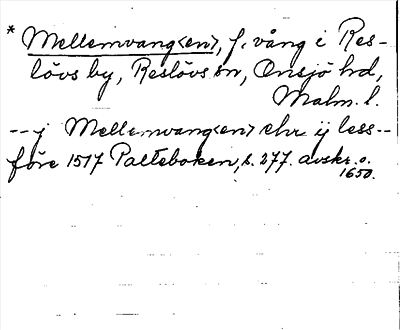 * Mellemvang<en>, f. vång i Res-
lövs by, Reslövs sn, Onsjö hd,
Malm. l.
-- j Mellemvang<en> ehr ij less --
före 1517 Palteboken, s. 277. avskr. o.
1650.